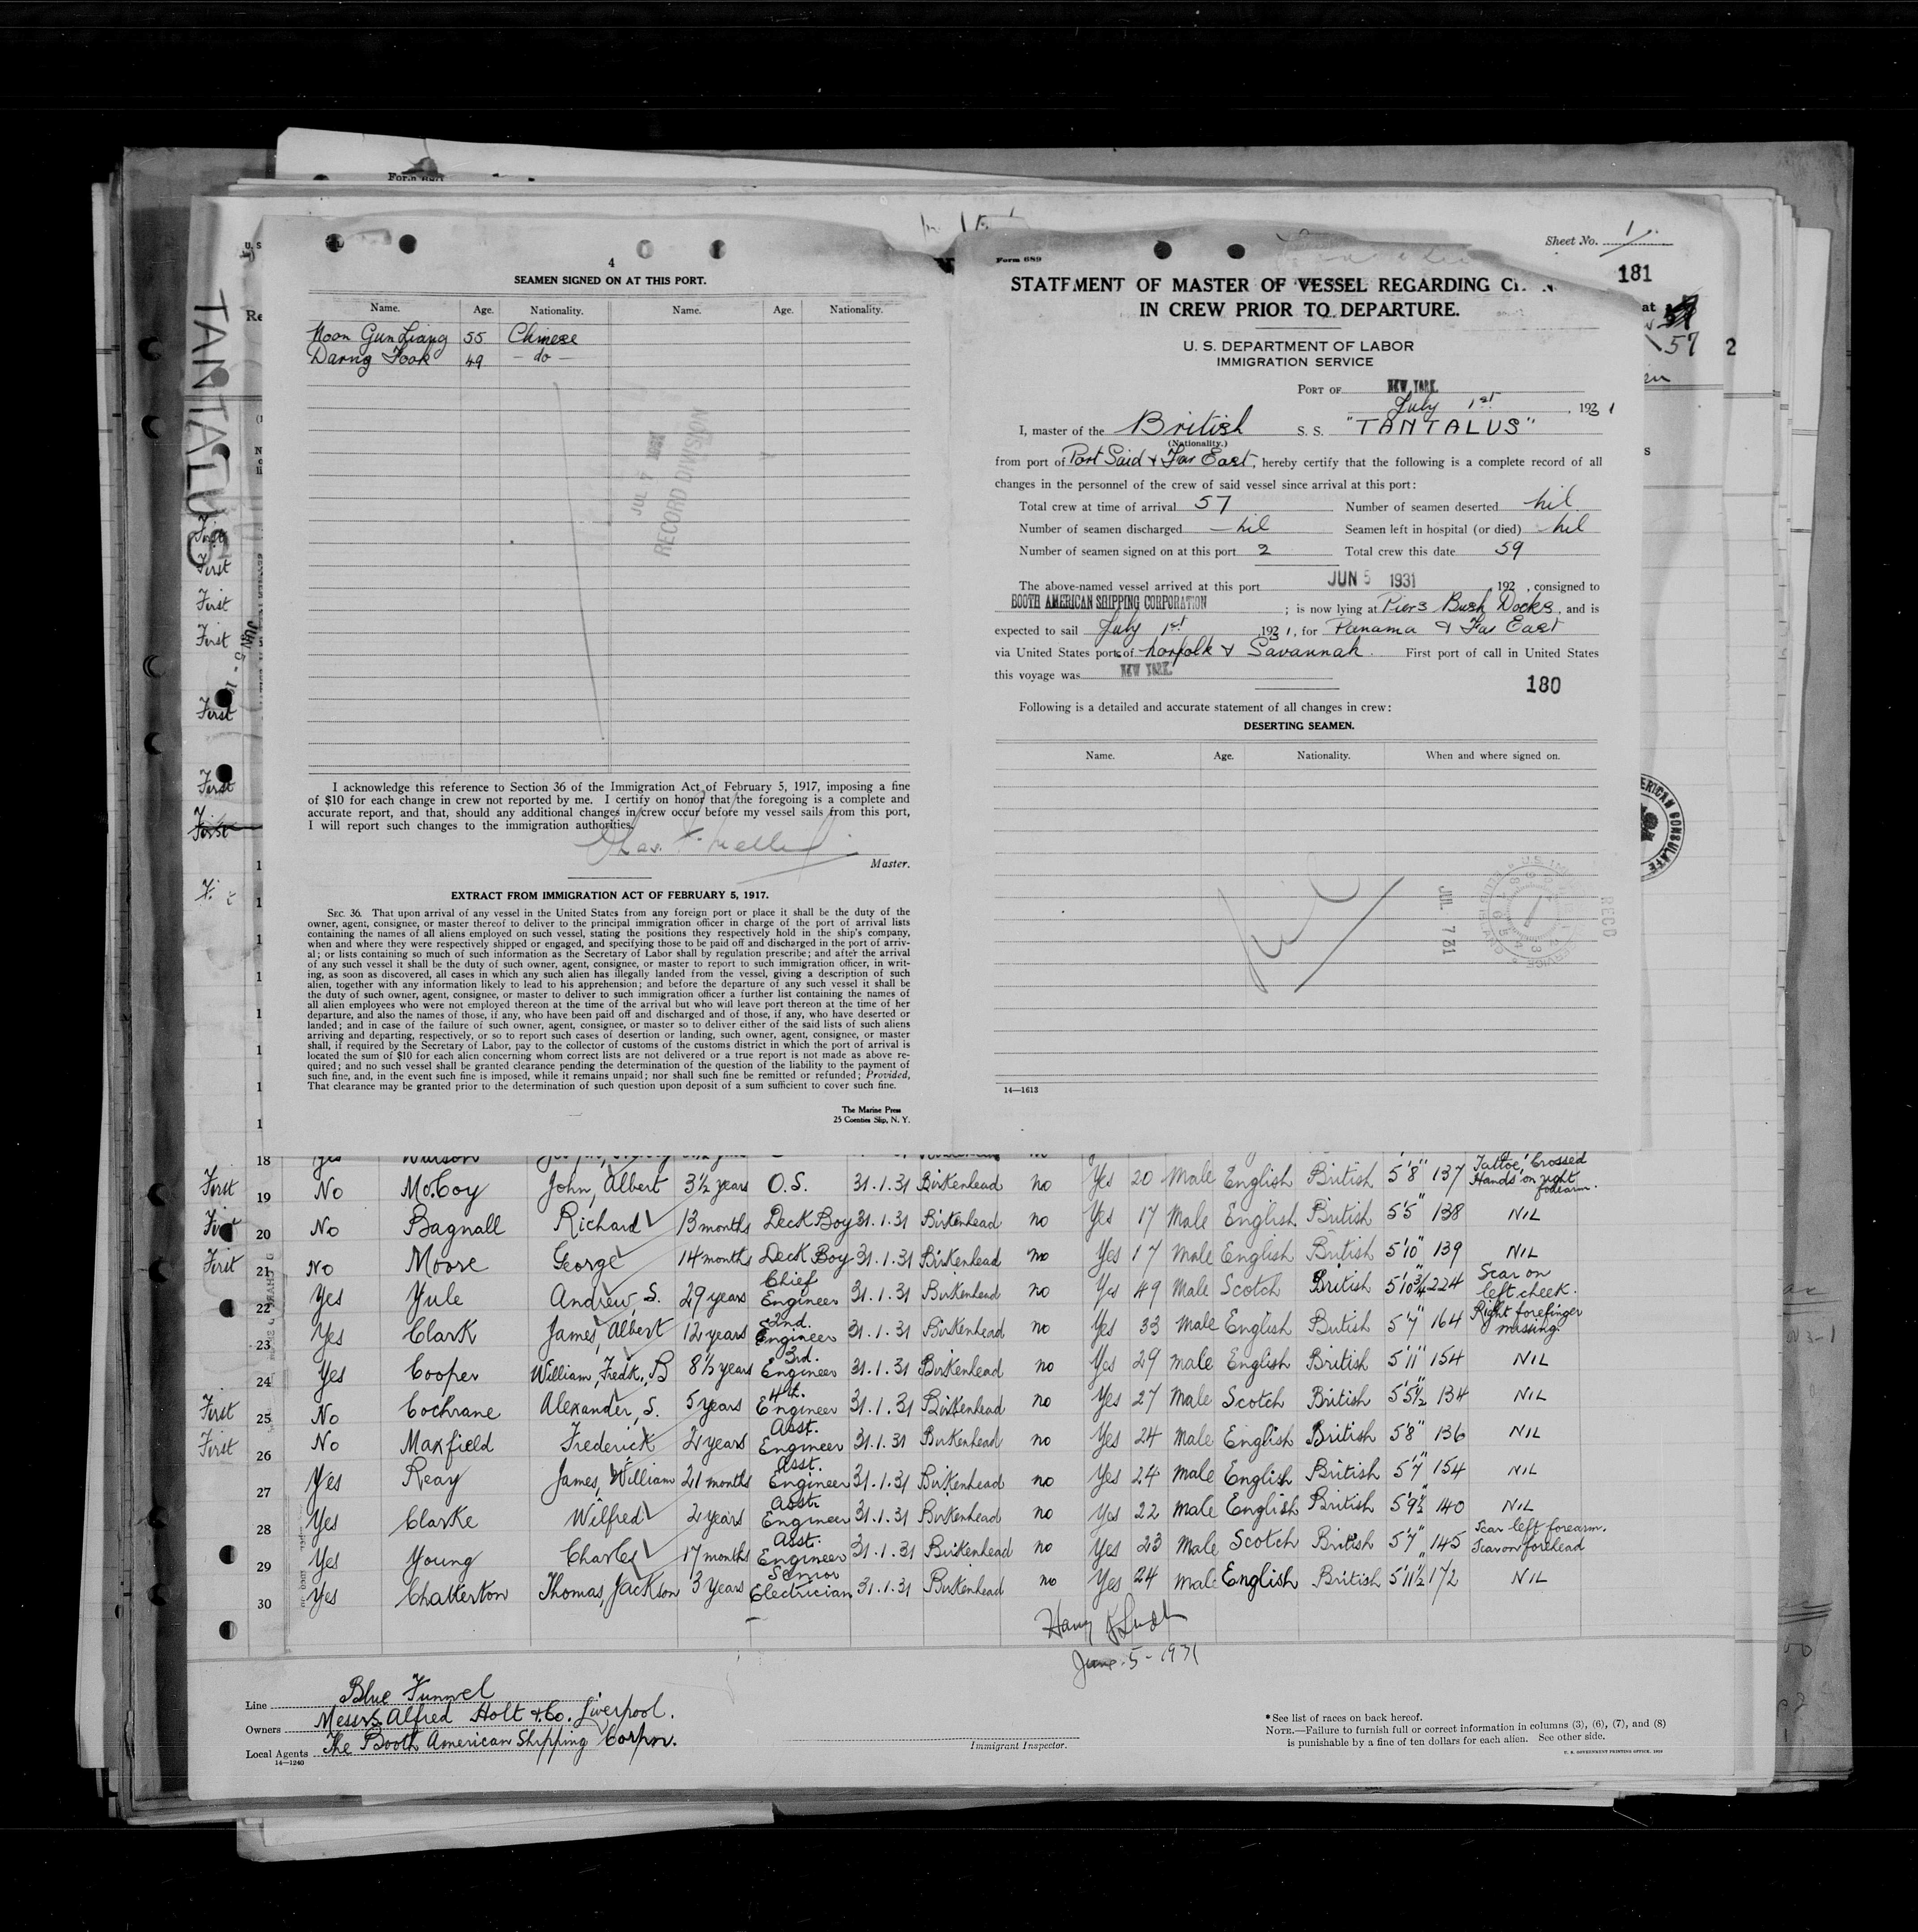 TANTALUS
4
SEAMEN SIGNED ON AT THIS PORT.
Name. Age. Nationality. Name. Age. Nationality.
55 Chinese
49 — do —
JUL 7
RECORD DIVISION
I acknowledge this reference to Section 36 of the Immigration Act of February 5, 1917, imposing a fine
of $10 for each change in crew not reported by me. I certify on honor that the foregoing is a complete and
accurate report, and that, should any additional changes in crew occur before my vessel sails from this port,
I will report such changes to the immigration authorities.
Master.
EXTRACT FROM IMMIGRATION ACT OF FEBRUARY 5, 1917.
SEC. 36. That upon arrival of any vessel in the United States from any foreign port or place it shall be the duty of the
owner, agent, consignee, or master thereof to deliver to the principal immigration officer in charge of the port of arrival lists
containing the names of all aliens employed on such vessel, stating the positions they respectively hold in the ship's company,
when and where they were respectively shipped or engaged, and specifying those to be paid off and discharged in the port of arriv-
al; or lists containing so much of such information as the Secretary of Labor shall by regulation prescribe; and after the arrival
of any such vessel it shall be the duty of such owner, agent, consignee, or master to report to such immigration officer, in writ-
ing, as soon as discovered, all cases in which any such alien has illegally landed from the vessel, giving a description of such
alien, together with any information likely to lead to his apprehension; and before the departure of any such vessel it shall be
the duty of such owner, agent, consignee, or master to deliver to such immigration officer a further list containing the names of
all alien employees who were not employed thereon at the time of the arrival but who will leave port thereon at the time of her
departure, and also the names of those, if any, who have been paid off and discharged and of those, if any, who have deserted or
landed; and in case of the failure of such owner, agent, consignee, or master so to deliver either of the said lists of such aliens
arriving and departing, respectively, or so to report such cases of desertion or landing, such owner, agent, consignee, or master
shall, if required by the Secretary of Labor, pay to the collector of customs of the customs district in which the port of arrival is
located the sum of $10 for each alien concerning whom correct lists are not delivered or a true report is not made as above re-
quired; and no such vessel shall be granted clearance pending the determination of the question of the liability to the payment of
such fine, and, in the event such fine is imposed, while it remains unpaid; nor shall such fine be remitted or refunded; Provided,
That clearance may be granted prior to the determination of such question upon deposit of a sum sufficient to cover such fine.
The Marine Press
25 Coenties Slip, N. Y.
Sheet No. 1
181
57
2
Form 689
STATEMENT OF MASTER OF VESSEL REGARDING
IN CREW PRIOR TO DEPARTURE.
U. S. DEPARTMENT OF LABOR
IMMIGRATION SERVICE
PORT OF NEW YORK.
July 1st, 1931
I, master of the British S. S. "TANTALUS"
(Nationality.)
from port of Port Said & Far East, hereby certify that the following is a complete record of all
changes in the personnel of the crew of said vessel since arrival at this port:
Total crew at time of arrival 57 Number of seamen deserted nil
Number of seamen discharged — nil Seamen left in hospital (or died) nil
Number of seamen signed on at this port 2 Total crew this date 59
The above-named vessel arrived at this port JUN 5 1931, 192 , consigned to
BOOTH AMERICAN SHIPPING CORPORATION ; is now lying at Piers Bush Docks, and is
expected to sail July 1st 1931, for Panama & Far East
via United States ports of Norfolk & Savannah. First port of call in United States
this voyage was NEW YORK.
180
Following is a detailed and accurate statement of all changes in crew:
DESERTING SEAMEN.
Name. Age. Nationality. When and where signed on.
nil
JUL 7 31
REC'D
14—1613
AMERICAN CONSULATE
18 Yes Watson
First 19 No McCoy John, Albert 3½ years O.S. 31.1.31 Birkenhead no Yes 20 Male English British 5'8" 137 Tattoe, Crossed Hands on right forearm.
First 20 No Bagnall Richard 13 months Deck Boy 31.1.31 Birkenhead no Yes 17 Male English British 5'5" 138 NIL
First 21 No Moore George 14 months Deck Boy 31.1.31 Birkenhead no Yes 17 Male English British 5'10" 139 NIL
22 Yes Yule Andrew, S. 29 years Chief Engineer 31.1.31 Birkenhead no Yes 49 Male Scotch British 5'10¾ 224 Scar on left cheek.
23 Yes Clark James, Albert 12 years 2nd. Engineer 31.1.31 Birkenhead no Yes 33 Male English British 5'7" 164 Right forefinger missing.
24 Yes Cooper William, Fredk., B 8½ years 3rd. Engineer 31.1.31 Birkenhead no Yes 29 Male English British 5'11" 154 NIL
First 25 No Cochrane Alexander, S. 5 years 4th. Engineer 31.1.31 Birkenhead no Yes 27 Male Scotch British 5'5½" 134 NIL
First 26 No Maxfield Frederick 2 years Asst. Engineer 31.1.31 Birkenhead no Yes 24 Male English British 5'8" 136 NIL
27 Yes Reay James, William 21 months Asst. Engineer 31.1.31 Birkenhead no Yes 24 Male English British 5'7" 154 NIL
28 Yes Clarke Wilfred 2 years Asst. Engineer 31.1.31 Birkenhead no Yes 22 Male English British 5'9½" 140 NIL
29 Yes Young Charles 17 months Asst. Engineer 31.1.31 Birkenhead no Yes 23 Male Scotch British 5'7" 145 Scar left forearm. Scar on forehead
30 Yes Chatterton Thomas, Jackson 3 years Senior Electrician 31.1.31 Birkenhead no Yes 24 Male English British 5'11½" 172 NIL
June 5 - 1931
Line Blue Funnel
Owners Messrs Alfred Holt & Co. Liverpool.
Local Agents The Booth American Shipping Corpn.
14—1240
Immigrant Inspector.
*See list of races on back hereof.
NOTE.—Failure to furnish full or correct information in columns (3), (6), (7), and (8)
is punishable by a fine of ten dollars for each alien. See other side.
U. S. GOVERNMENT PRINTING OFFICE